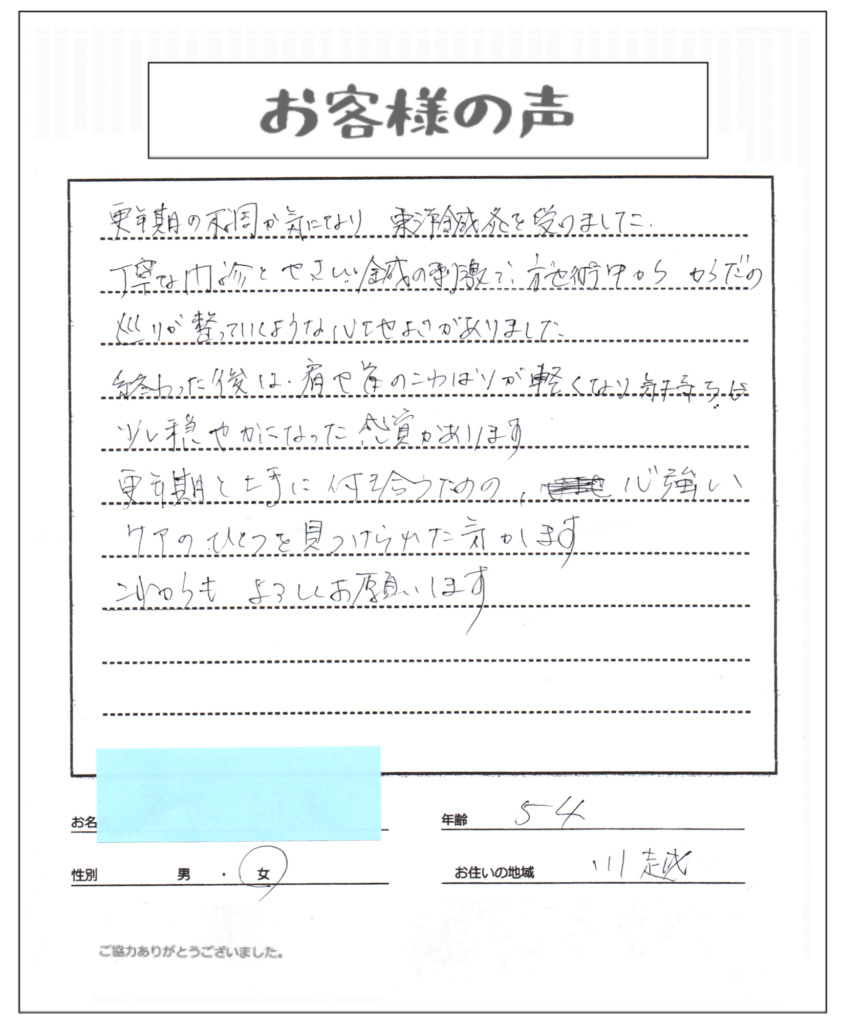 お客様の声
更年期の不調が気になり 東洋鍼灸を受けました.
丁寧な問診とやさしい鍼の刺激で、施術中から からだの
巡りが整っていくような心地よさがありました
終わった後は、肩や首のこわばりが軽くなり 気持ちも
少し穏やかになった感覚があります
更年期と上手に付き合うための、心強い
ケアのひとつを見つけられた気がします
これからも よろしくお願いします
お名
年齢 54
性別 男 ・ 女
お住いの地域 川越
ご協力ありがとうございました。